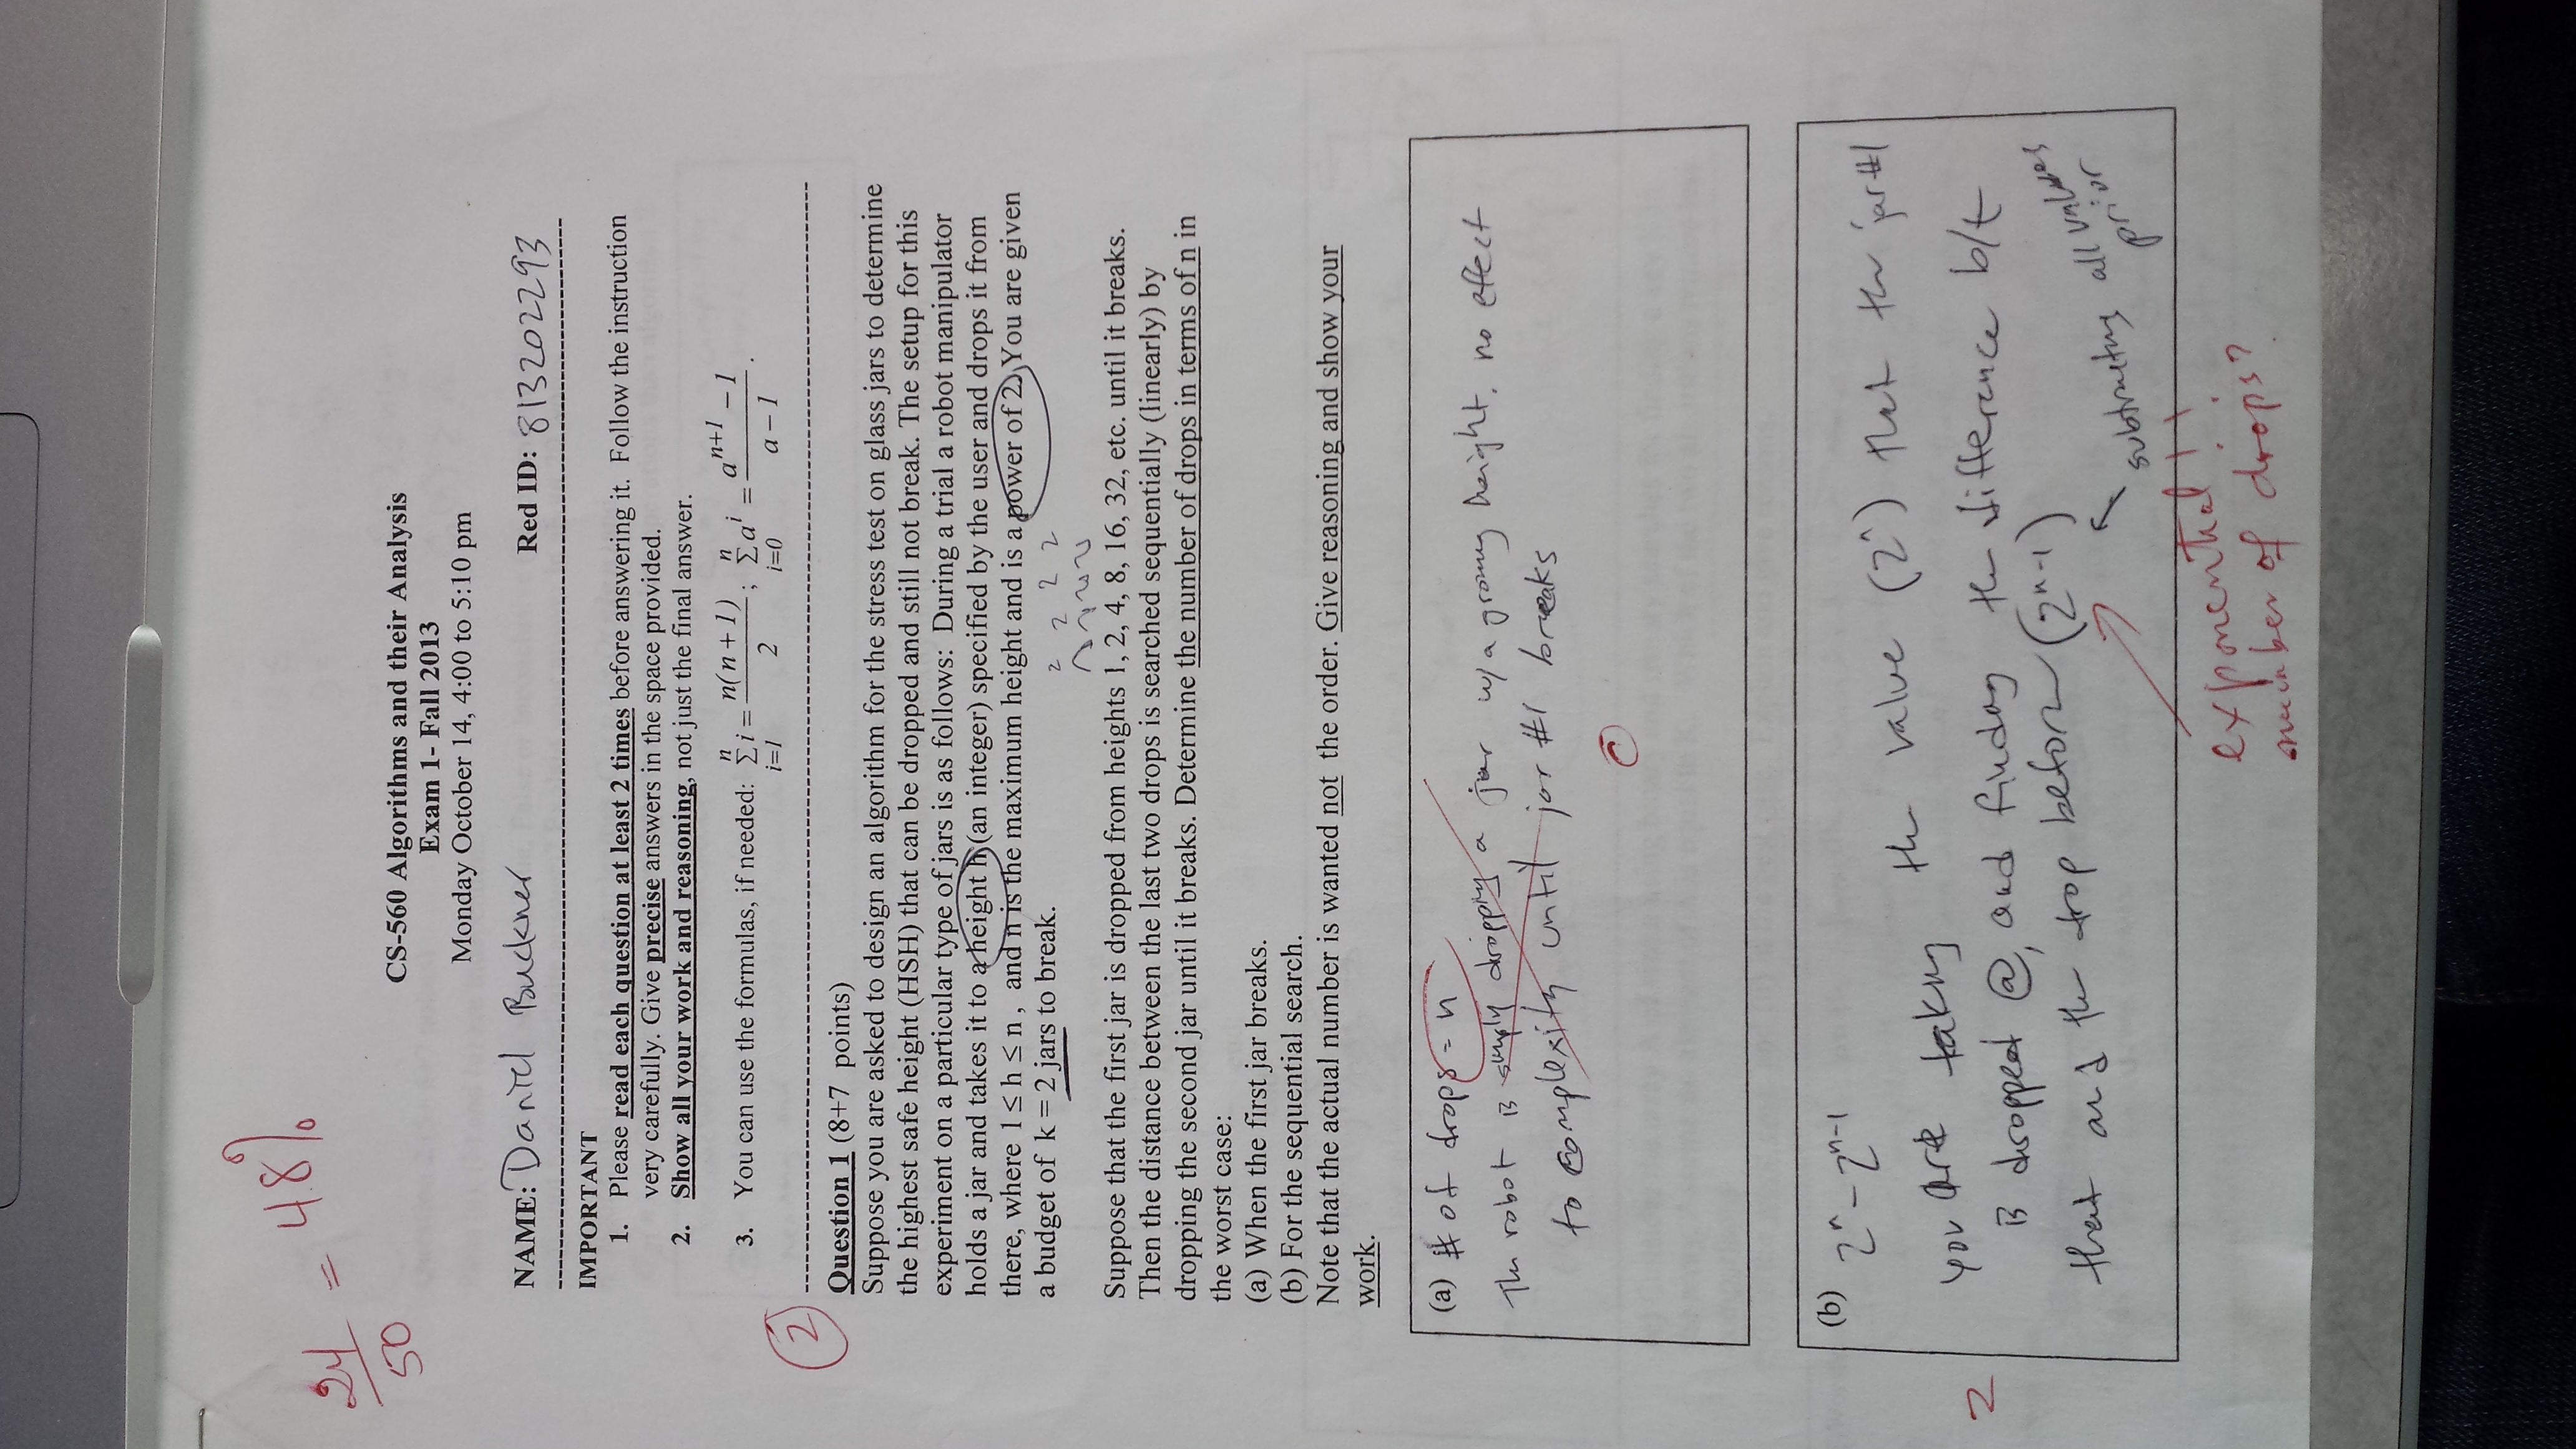 24/50 = 48%
CS-560 Algorithms and their Analysis
Exam 1- Fall 2013
Monday October 14, 4:00 to 5:10 pm
NAME: Daniel Buckner Red ID: 813202293
IMPORTANT
1. Please read each question at least 2 times before answering it. Follow the instruction
very carefully. Give precise answers in the space provided.
2. Show all your work and reasoning, not just the final answer.
3. You can use the formulas, if needed: n Σ i=1 i = n(n+1)/2 ; n Σ i=0 a^i = (a^(n+1) − 1)/(a − 1) .
2
Question 1 (8+7 points)
Suppose you are asked to design an algorithm for the stress test on glass jars to determine
the highest safe height (HSH) that can be dropped and still not break. The setup for this
experiment on a particular type of jars is as follows: During a trial a robot manipulator
holds a jar and takes it to a height h (an integer) specified by the user and drops it from
there, where 1 ≤ h ≤ n , and n is the maximum height and is a power of 2. You are given
a budget of k = 2 jars to break.
Suppose that the first jar is dropped from heights 1, 2, 4, 8, 16, 32, etc. until it breaks.
Then the distance between the last two drops is searched sequentially (linearly) by
dropping the second jar until it breaks. Determine the number of drops in terms of n in
the worst case:
(a) When the first jar breaks.
(b) For the sequential search.
Note that the actual number is wanted not the order. Give reasoning and show your
work.
(a) # of drops = n
The robot is simply dropping a jar w/a growing height. no effect
to complexity until jar #1 breaks
(b) 2^n - 2^(n-1)
you are taking the value (2^n) that the jar #1
is dropped @, and finding the difference b/t
that and the drop before (2^(n-1))
subtracting all values
prior
2
exponential!!
number of drops?